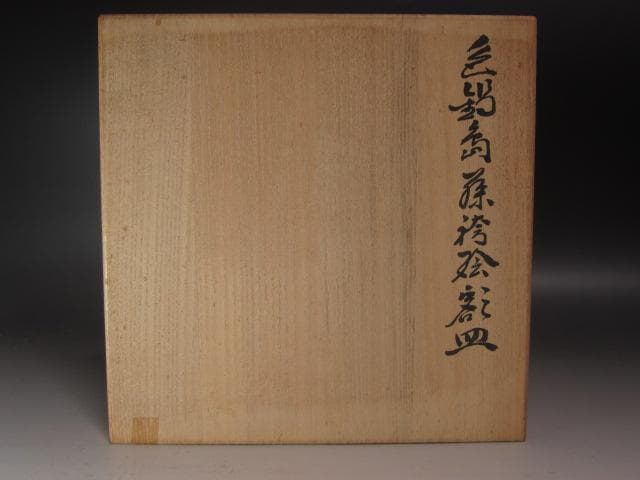 色鍋島藤袴絵額皿